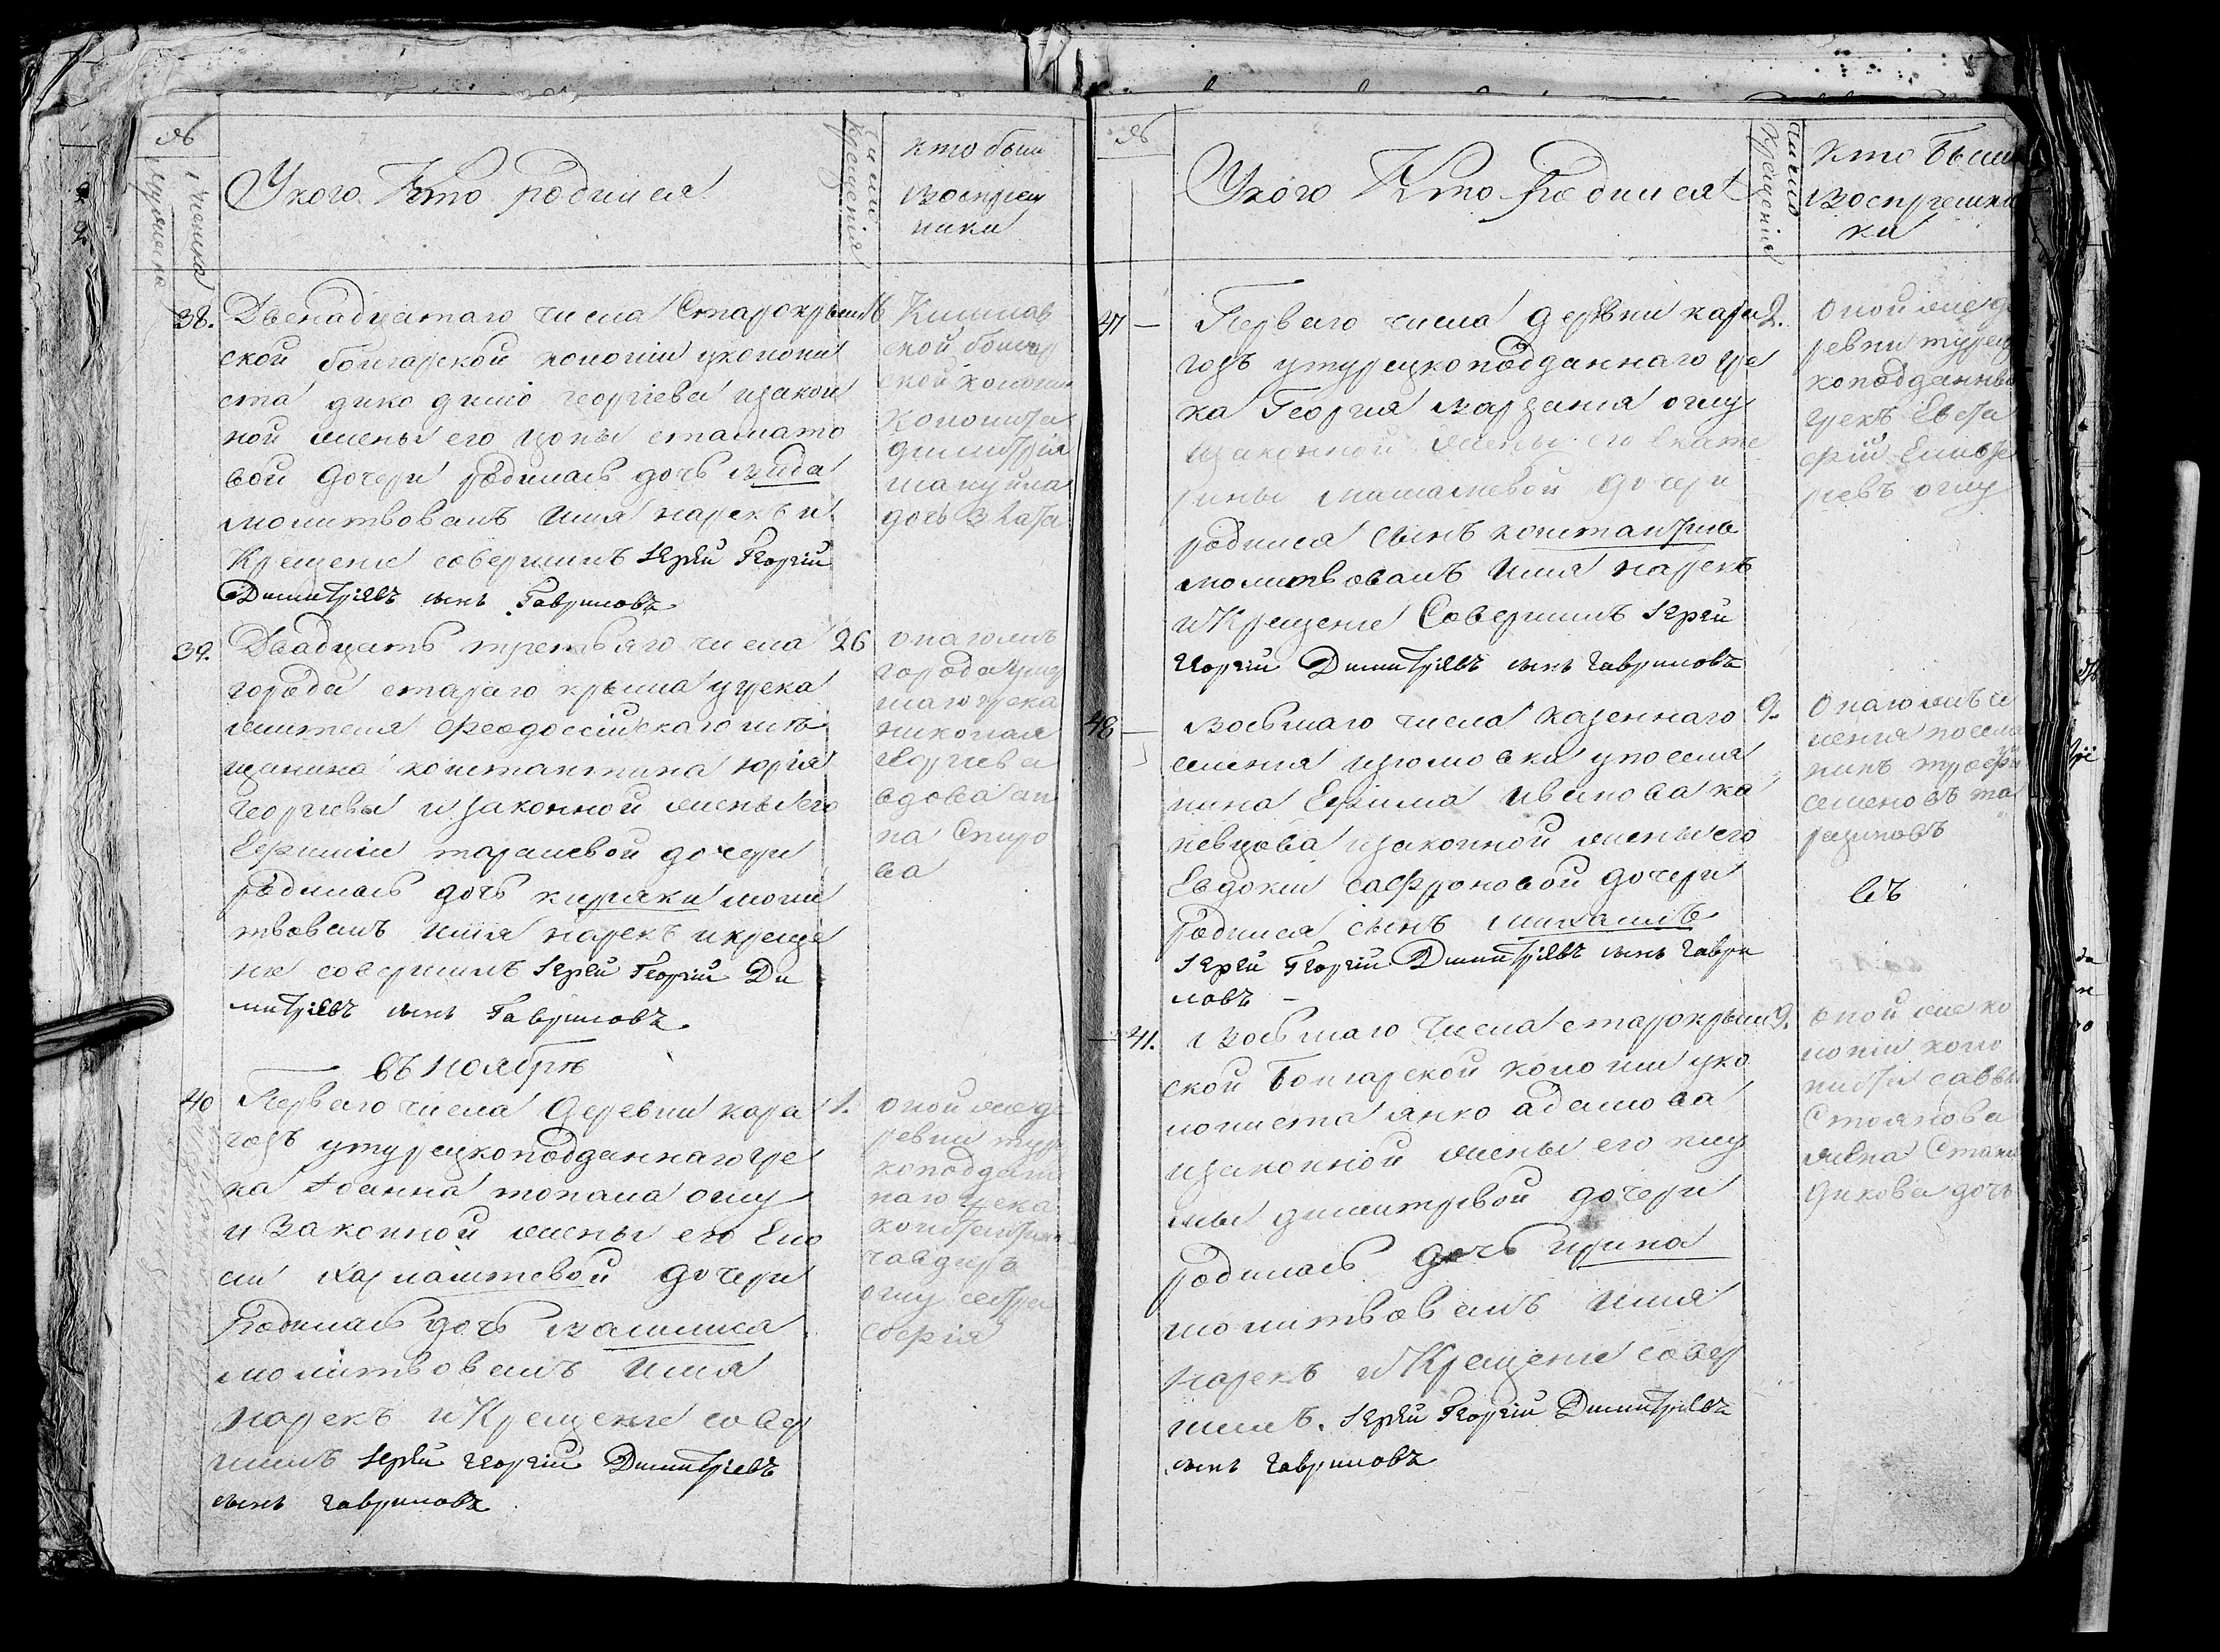 №
Женска
Мужеска
У кого кто родился
Число
крещенія
кто были
восприем
ники
38. Двенадцатаго числа Старокрым 16
ской болгарской колоніи у колони
ста дико димо георгіева изакон
ной жены его цоны стамато
вой дочери родилась дочь вида
молитвовалъ имя нарекъ и
Крещение совершилъ Іерей Георгій
Димитріевъ сынъ Гавриловъ
Кишлав
ской болгар
ской колоніи
колониста
димитрія
дочь Злата
39. Двадцать третьяго числа 26
города стараго крыма у грека
жителя феодоссійскаго мѣ
щанина константина юрія
георгіева изаконной жены его
Ефиміи дочери
родилась дочь киряки моли
твовалъ имя нарекъ и креще
ніе совершилъ Іерей Георгій Ди
митріевъ сынъ Гавриловъ
онагожъ
города умер
шаго грека
николая
георгіева
вдова ан
на Спиро
ва
въ ноябрѣ
40 Перваго числа деревни кара 1.
гозъ у турецкоподданнаго гре
ка Іоанна топала оглу
и законной жены его Еле
ни дочери
Родилась дочь василиса
молитвовалъ имя
нарекъ и Крещение совер
шилъ Іерей георгій Димитріевъ
сынъ гавриловъ
оной же де
ревни туре
коподдан
наго грека
константина
оглу сестра
софія
№
У кого Кто Родился
число
крещенія
Кто Были
восприемни
ки
47 Перваго числа деревни кара 2.
гозъ у турецкоподданнаго гре
ка Георгия оглу
изаконной жены его Екате
рины дочери
родился сынъ константинъ
молитвовалъ имя нарекъ
и Крещение Совершилъ Іерей
георгій Димитріевъ сынъ гавриловъ
Оной же де
ревни турец
коподданный
грекъ Евста
фій
оглу
48 восьмаго числа казеннаго 9.
селения изюмовки у посели
нина Ефима Иванова ка
невцова изаконной жены его
Евдокіи сафроновой дочери
Родился сынъ михаилъ
Іерей Георгій Димитріевъ сынъ гаври
ловъ
Онагожъ се
ления посели
нинъ трофи
семеновъ та
въ
41. восьмаго числа старокрым 9.
ской Болгарской колоніи у ко
лониста янко адамова
изаконной жены его
димитріевой дочери
родилась дочь ирина
молитвовалъ имя
нарекъ и Крещение совер
шилъ. Іерей Георгій Димитріевъ
сынъ гавриловъ
оной же ко
лоніи коло
ниста саввы
Стоянова
жена Стана
дикова дочь